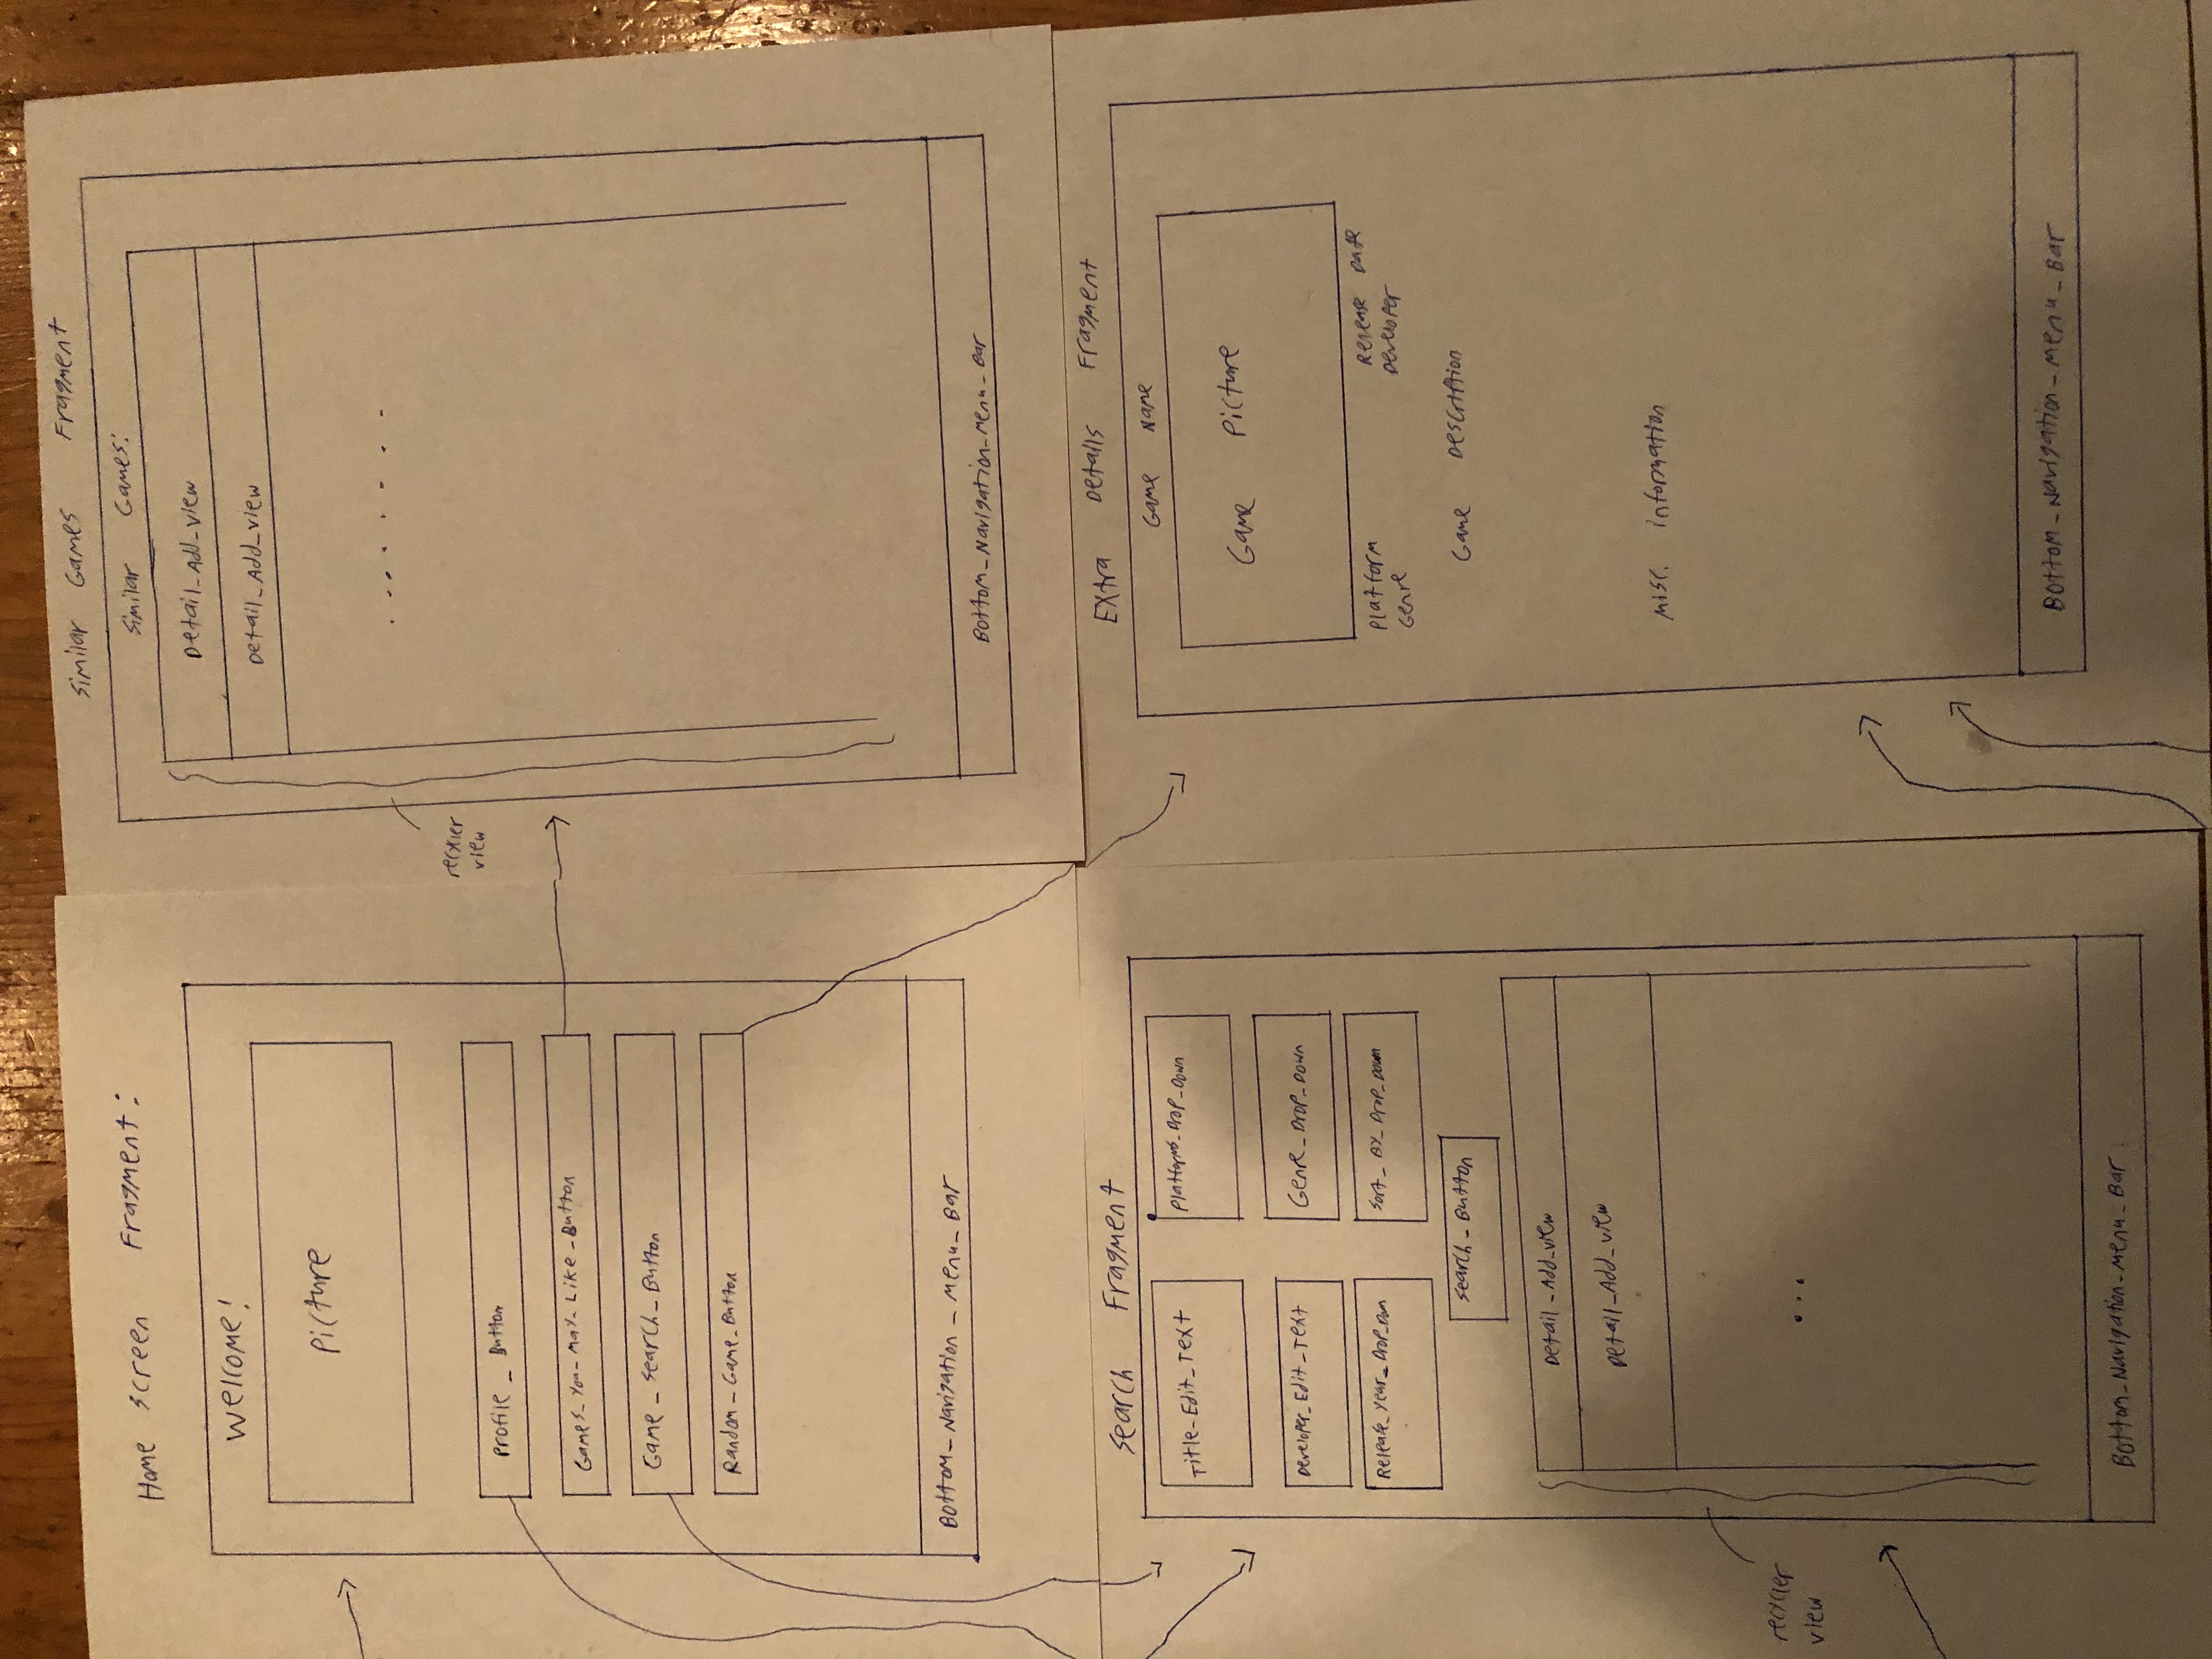 Home Screen Fragment:
Welcome!
Picture
Profile_Button
Games_You_May_Like_Button
Game_Search_Button
Random_Game_Button
Bottom_Navigation_Menu_Bar
Similar Games Fragment
Similar Games:
Detail_Add_View
Detail_Add_View
. . . . . . . .
recycler
view
Bottom_Navigation_Menu_Bar
Search Fragment
Title_Edit_Text
Platforms_Drop_Down
Developer_Edit_Text
Genre_Drop_Down
Release_Year_Drop_Down
Sort_By_Drop_Down
Search_Button
Detail_Add_View
Detail_Add_View
...
recycler
view
Bottom_Navigation_Menu_Bar
Extra Details Fragment
Game Name
Game Picture
Platform
Genre
Release Date
Developer
Game Description
Misc. Information
Bottom_Navigation_Menu_Bar